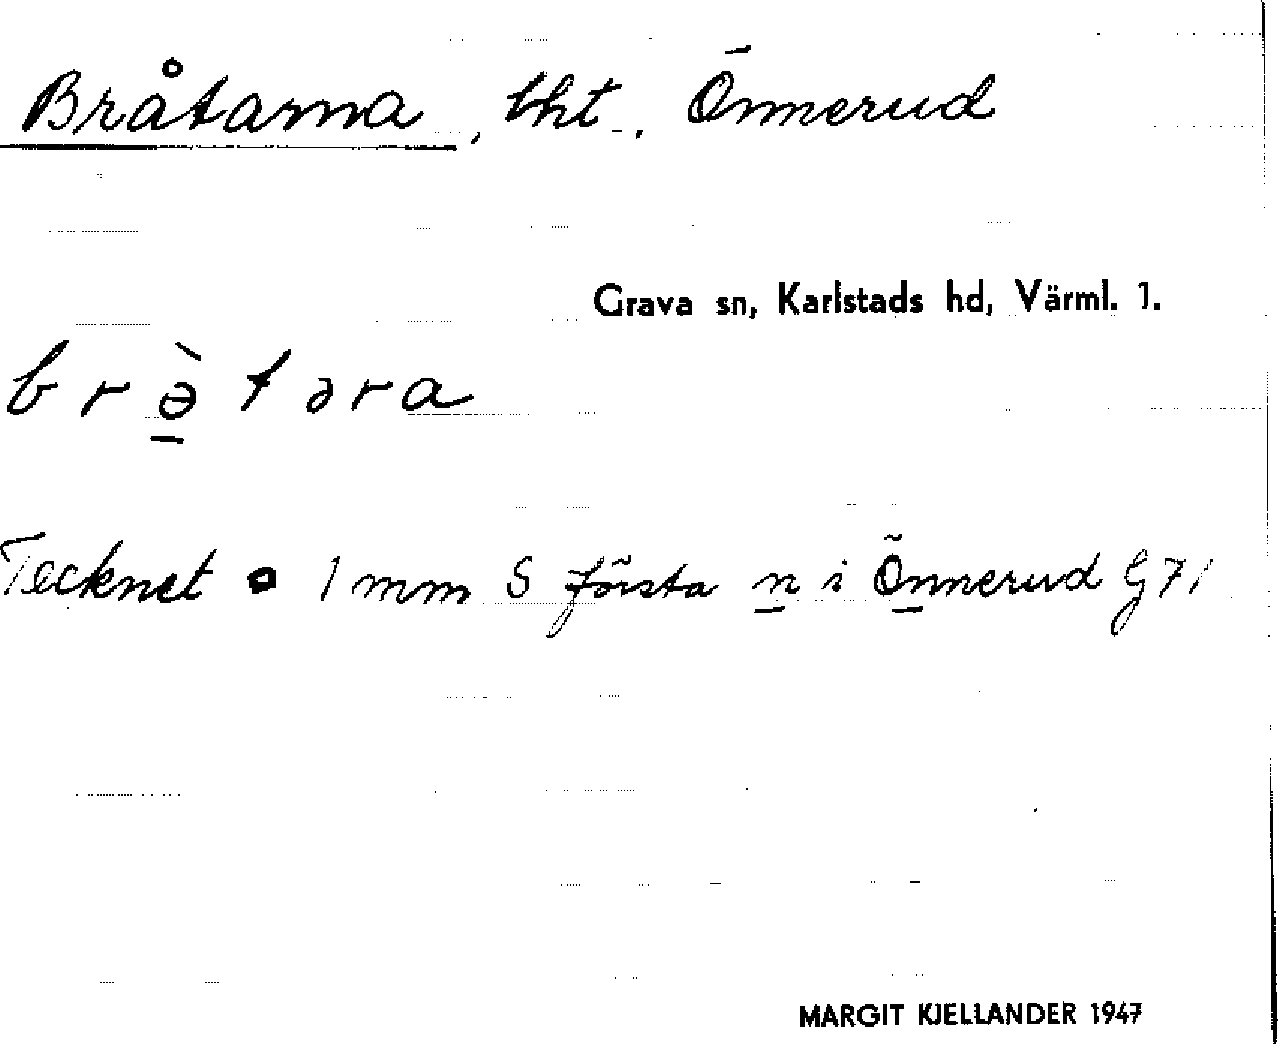 Bråtarna, lht., Önnerud
Grava sn, Karlstads hd, Värml. 1.
br ə̠̀ t ə r a
Tecknet o 1 mm S första n i Önnerud G71
MARGIT KJELLANDER 1947